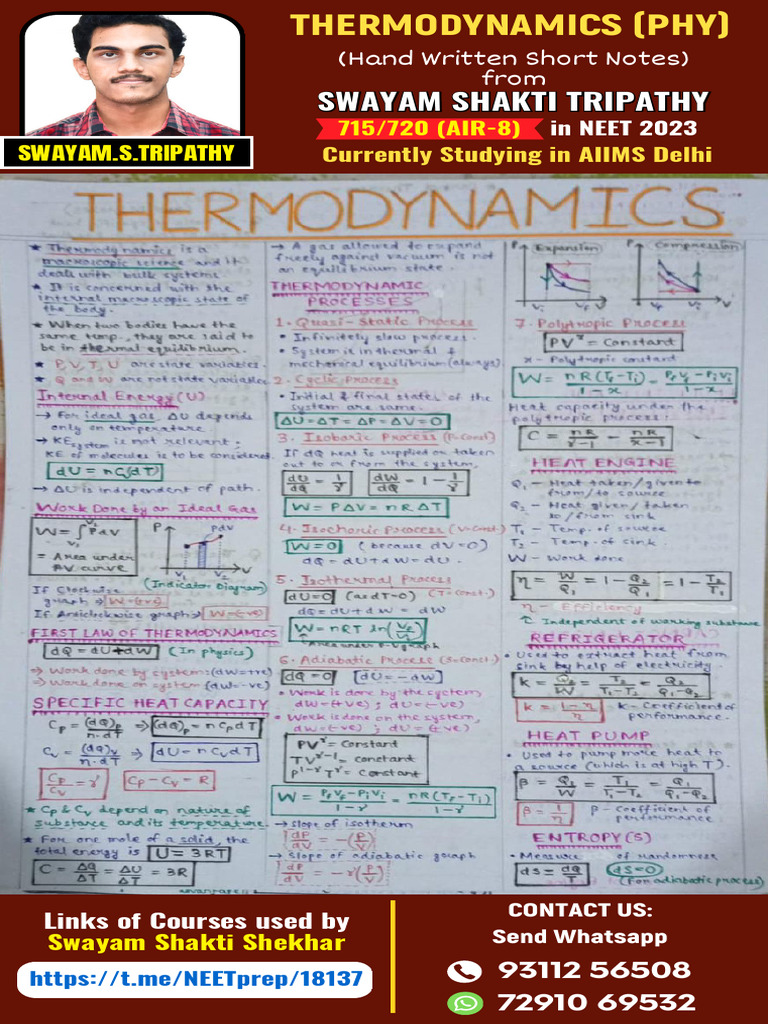 THERMODYNAMICS (PHY)
(Hand Written Short Notes)
from
SWAYAM SHAKTI TRIPATHY
715/720 (AIR-8) in NEET 2023
Currently Studying in AIIMS Delhi
SWAYAM.S.TRIPATHY
THERMODYNAMICS
★ Thermodynamics is a
macroscopic science and it
deals with bulk systems
★ It is concerned with the
internal macroscopic state of
the body.
★ When two bodies have the
same temp., they are said to
be in thermal equilibrium.
★ P, V, T, U are state variables.
★ Q and W are not state variables.
Internal Energy (U)
→ For ideal gas, ΔU depends
only on temperature
→ KE system is not relevant;
KE of molecules is to be considered.
dU = nCv(dT)
→ ΔU is independent of path.
Work Done by an Ideal Gas
W = ∫ PdV
= Area under
PV curve
P
PdV
V1 V2 V
(Indicator Diagram)
If Clockwise
graph → W = (+ve)
If Anticlockwise graph → W = (-ve)
FIRST LAW OF THERMODYNAMICS
dQ = dU + dW (In physics)
⇒ Work done by system: (dW=+ve)
⇒ Work done on system (dW=-ve)
SPECIFIC HEAT CAPACITY
Cp = (dQ)p / n.dT ⇒ (dQ)p = n Cp dT
Cv = (dQ)v / n.dT ⇒ dU = n Cv dT
Cp/Cv = γ Cp - Cv = R
★ Cp & Cv depend on nature of
substance and its temperature.
★ For one mole of a solid, the
total energy is U = 3RT
C = ΔQ/ΔT = ΔU/ΔT = 3R
→ A gas allowed to expand
freely against vacuum is not
an equilibrium state.
THERMODYNAMIC
PROCESSES
1. Quasi-Static Process
• Infinitely slow process.
• System is in thermal &
mechanical equilibrium (always)
2. Cyclic Process
• Initial & final states of the
system are same.
ΔU = ΔT = ΔP = ΔV = 0
3. Isobaric Process (P=Const)
If dQ heat is supplied or taken
out to or from the system,
dU/dQ = 1/γ dW/dQ = 1 - 1/γ
W = PΔV = nRΔT
4. Isochoric Process (V=Const.)
W = 0 (because dV = 0)
dQ = dU + dW = dU.
5. Isothermal Process
dU = 0 (as dT=0) (T=Const.)
dQ = dU + dW = dW
W = nRT ln(V2/V1)
Area under P-V graph
6. Adiabatic Process (S=Const.)
dQ = 0 dU = -dW
• Work is done by the system,
dW=(+ve) ; dU=(-ve)
• Work is done on the system,
dW=(-ve) ; dU=(+ve)
PV^γ = Constant
TV^γ-1 = constant
P^1-γ T^γ = Constant
W = PfVf - PiVi / 1-γ = nR(Tf - Ti) / 1-γ
→ Slope of isotherm
dP/dV = -(P/V)
→ Slope of adiabatic graph
dP/dV = -γ(P/V)
P Expansion P Compression
Vi Vf V Vf Vi V
7. Polytropic Process
PV^x = Constant
x - Polytropic constant
W = nR(Tf - Ti) / 1-x = PfVf - PiVi / 1-x
Heat capacity under the
polytropic process:
C = nR/γ-1 - nR/x-1
HEAT ENGINE
Q1 - Heat taken/given to
from/to source
Q2 - Heat given/taken
to/from sink
T1 - Temp. of source
T2 - Temp. of sink.
W - Work done
η = W/Q1 = 1 - Q2/Q1 = 1 - T2/T1
η - Efficiency
Independent of working substance
REFRIGERATOR
• Used to extract heat from
sink by help of electricity
K = Q2/W = T2/T1-T2 = Q2/Q1-Q2
K = 1-η/η K - Coefficient of
performance.
HEAT PUMP
• Used to pump more heat to
a source (which is at high T).
β = Q1/W = T1/T1-T2 = Q1/Q1-Q2
β = 1/η β - Coefficient of
performance
ENTROPY (S)
• Measure of randomness
dS = dQ/T dS=0
(For adiabatic process)
Links of Courses used by
Swayam Shakti Shekhar
https://t.me/NEETprep/18137
CONTACT US:
Send Whatsapp
93112 56508
72910 69532